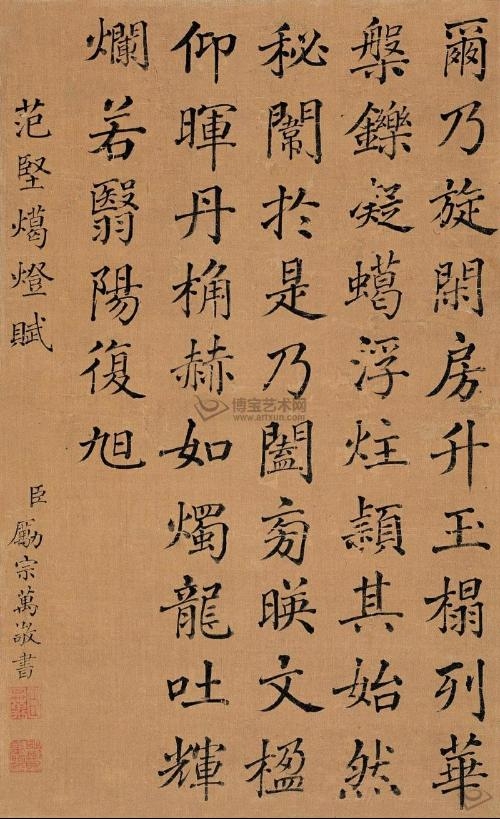 爾乃旋閑房升玉榻列華
槃鑠凝蠟浮炷穎其始然
秘闈於是乃闔旁暎文楹
仰暉丹桷赫如燭龍吐輝
爛若翳陽復旭
范堅蠟燈賦
臣勵宗萬敬書
博宝艺术网
www.artxun.com